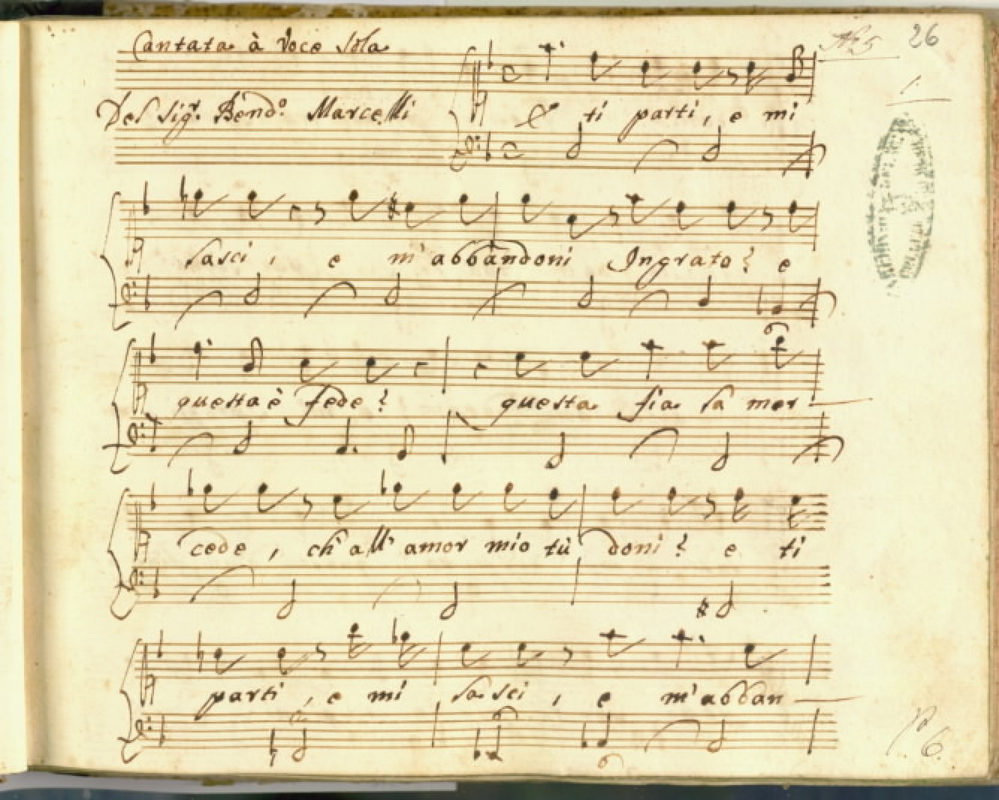 Cantata à Voce sola
26
Del Sigr. Bendo. Marcelli
E ti parti, e mi
1.
lasci, e m'abbandoni Ingrato? e
questa è fede? questa fia la mer
cede, ch'all'amor mio tù doni? e ti
parti, e mi lasci, e m'abban
6